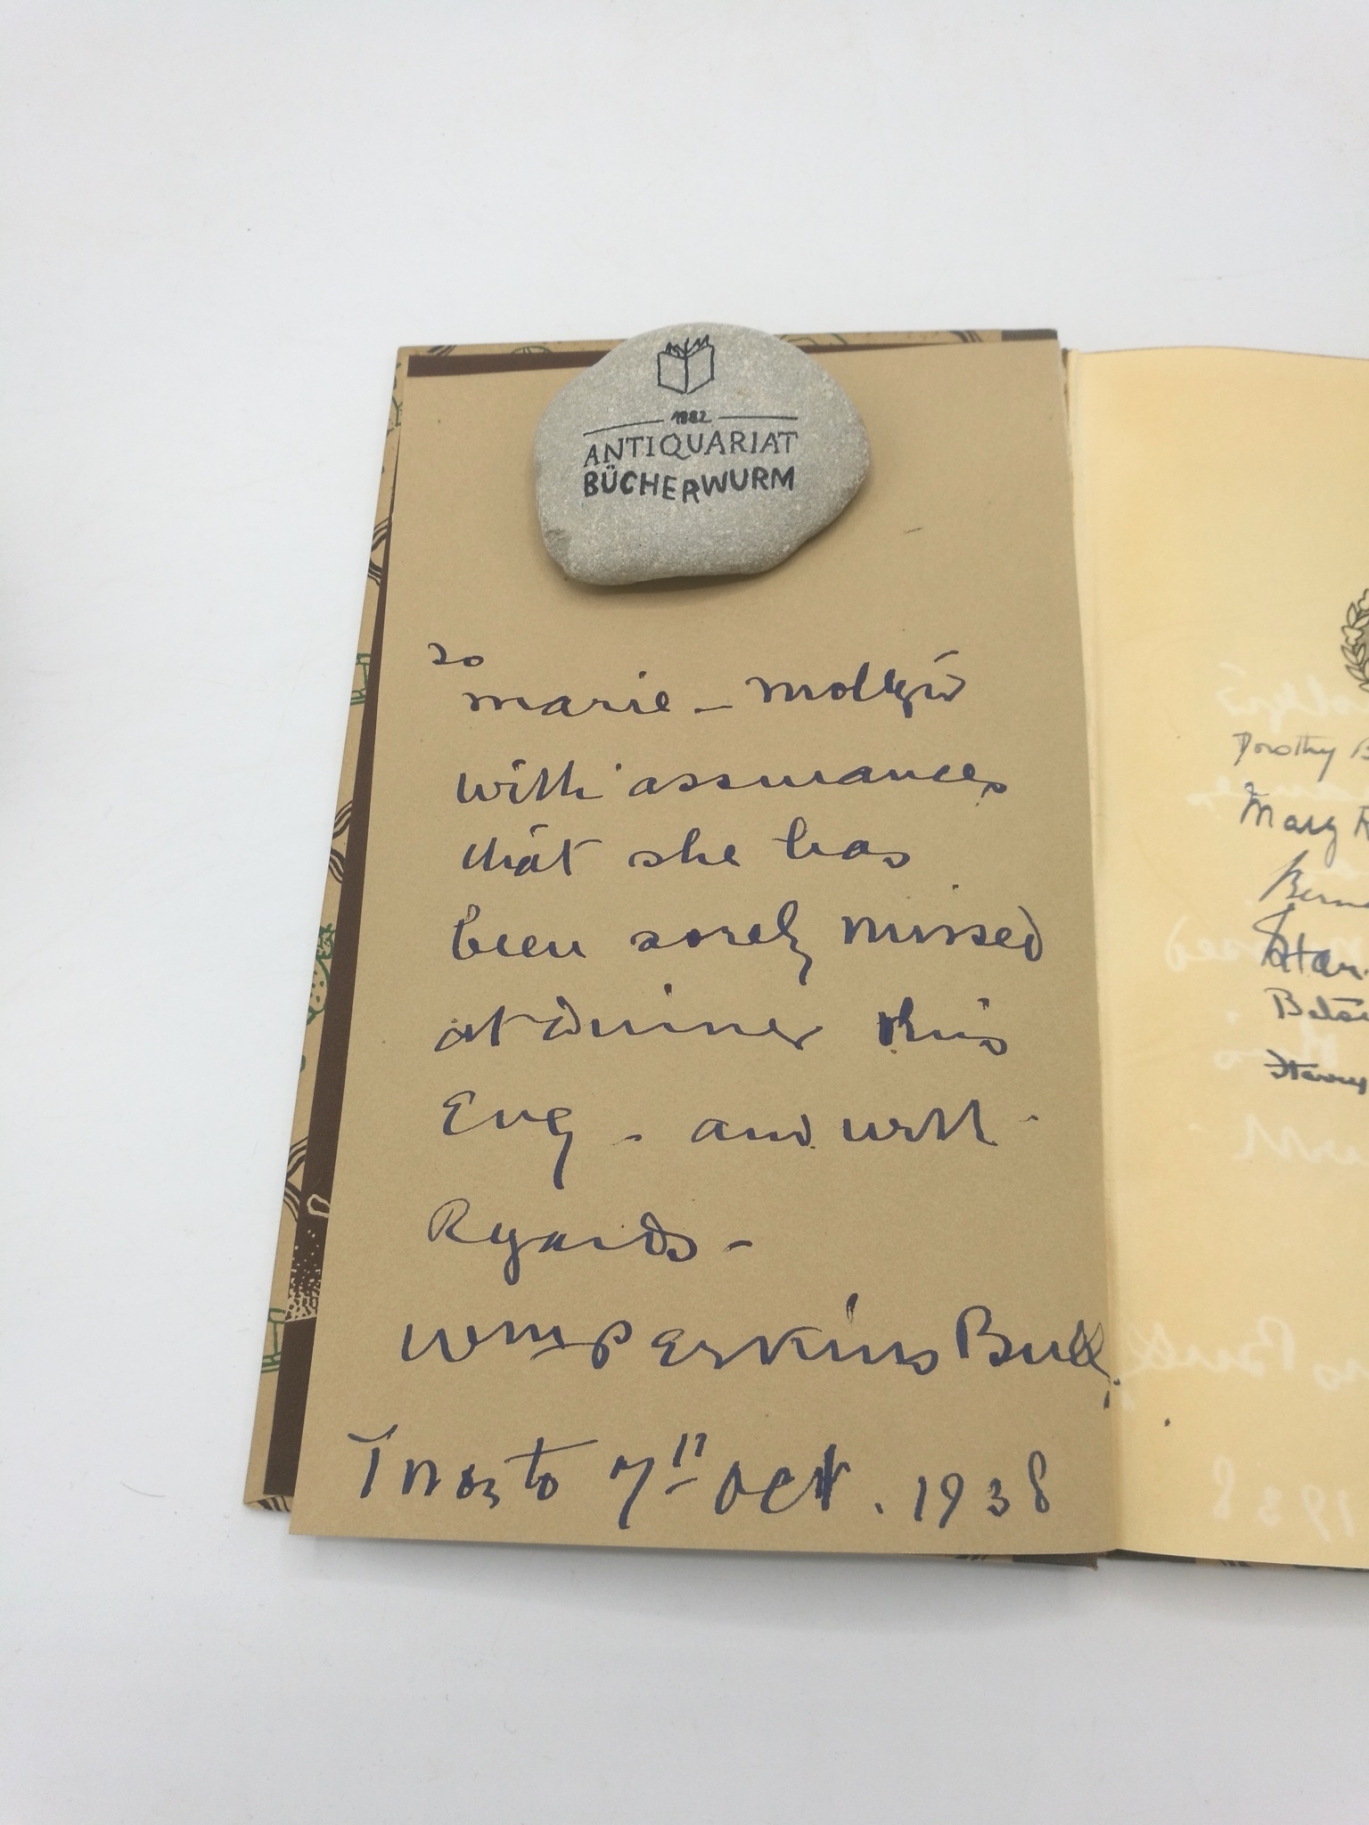 1882
ANTIQUARIAT
BÜCHERWURM
To
Marie -
with assurances
that she has
been sorely missed
at dinner this
Evg - and with
Regards -
Wm Perkins Bull
Toronto 7th Oct. 1938
Dorothy B
Mary R